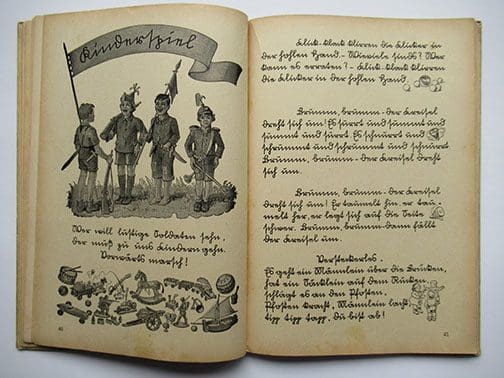 Kinderspiel
Wer will lustige Soldaten sehn,
der muß zu uns Kindern gehn.
Vorwärts marsch!
40
Klick-klack klirren die Klicker in
der hohlen Hand. Wieviele sinds? Wer
kann es erraten? Klick-klack klirren
die Klicker in der hohlen Hand.
Brumm, brumm- der Kreisel
dreht sich um! Es surrt und summt und
summt und surrt. Es schnurrt und
schrummt und schrummt und schnurrt.
Brumm, brumm- der Kreisel dreht
sich um.
Brumm, brumm- der Kreisel
dreht sich um! Er taumelt hin, er tau-
melt her, er legt sich auf die Seite
schwer. Brumm, brumm- dann fällt
der Kreisel um.
Versteckerles.
Es geht ein Männlein über die Brücken,
hat ein Säcklein auf dem Rücken
schlägt es an den Pfosten.
Pfosten kracht, Männlein lacht,
tipp tipp tapp, du bist ab!
41